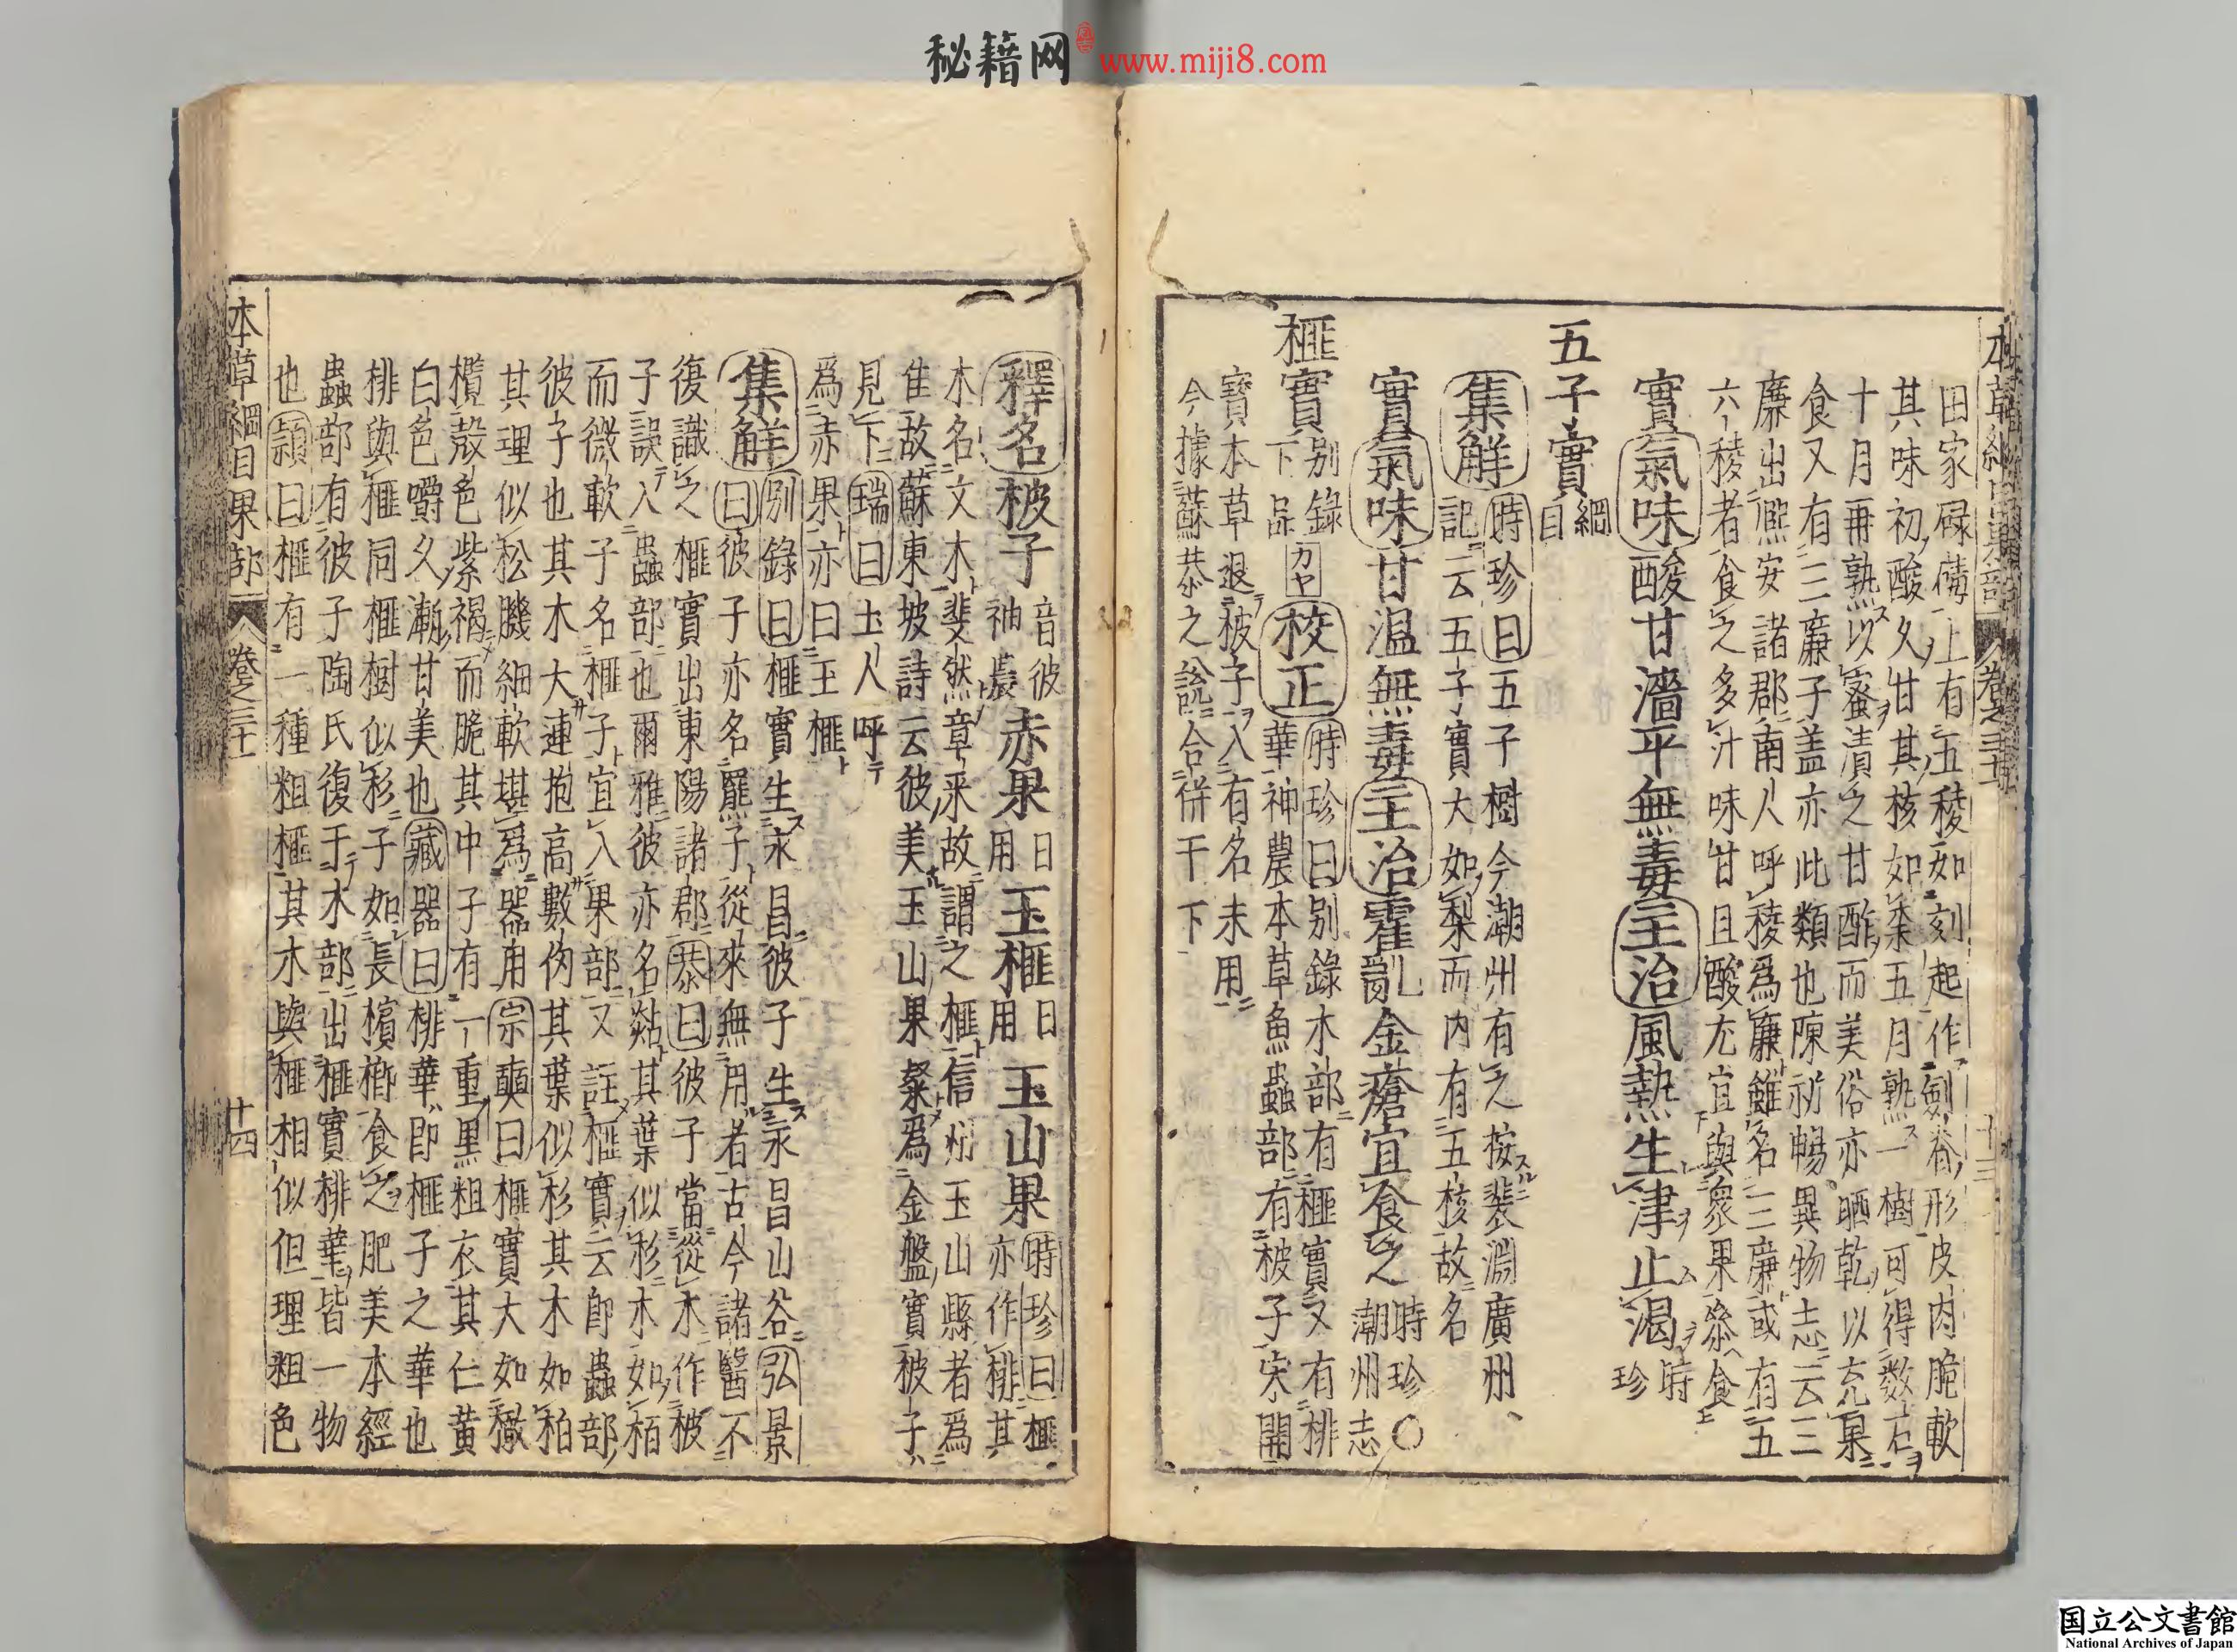 秘籍网 www.miji8.com
田家碌磚上有五稜如刻起作劒脊形皮肉脆軟
其味初酸久甘其核如柰五月熟一樹可得数石
十月再熟以蜜漬之甘酢而美俗亦晒乾以充菓
食又有三廉子盖亦此類也陳祈暢異物志云三
廉出熙安諸郡南人呼稜爲廉雖名三廉或有五
六稜者食之多汁味甘且酸尤宜與衆果參食
實氣味酸甘濇平無毒主治風熱生津止渴時珍
五子實綱目
集解時珍曰五子樹今潮州有之按裴淵廣州
記云五子實大如梨而内有五核故名
實氣味甘温無毒主治霍亂金瘡宜食之時珍○潮州志
榧實别錄下品カヤ校正時珍曰别錄木部有榧實又有排
華神農本草魚蟲部有柀子宋開
寶本草退柀子入有名未用
今據蘇恭之說合併于下
本草綱目果部 卷之三十一 十三
釋名柀子音彼神農赤果日用玉榧日用玉山果時珍曰榧亦作棑其
木名文木斐然章采故謂之榧信州玉山縣者爲
佳故蘇東坡詩云彼美玉山果粲爲金盤實柀子
見下瑞曰土人呼
爲赤果亦曰玉榧
集解别錄曰榧實生永昌彼子生永昌山谷弘景
曰彼子亦名羆子從來無用者古今諸醫不
復識之榧實出東陽諸郡恭曰彼子當從木作柀
子誤入蟲部也爾雅彼亦名㸃其葉似杉木如栢
而微軟子名榧子宜入果部又註榧實云卽蟲部
彼子也其木大連抱高數仞其葉似杉其木如柏
其理似松肌細軟堪爲器用宗奭曰榧實大如橄
欖殼色紫褐而脆其中子有一重黑粗衣其仁黄
白色嚼久漸甘美也藏器曰棑華卽榧子之華也
棑與榧同榧樹似杉子如長檳榔食之肥美本經
蟲部有彼子陶氏復于木部出榧實棑華皆一物
也頴曰榧有一種粗榧其木與榧相似但理粗色
本草綱目果部 卷之三十一 十四
国立公文書館
National Archives of Japan